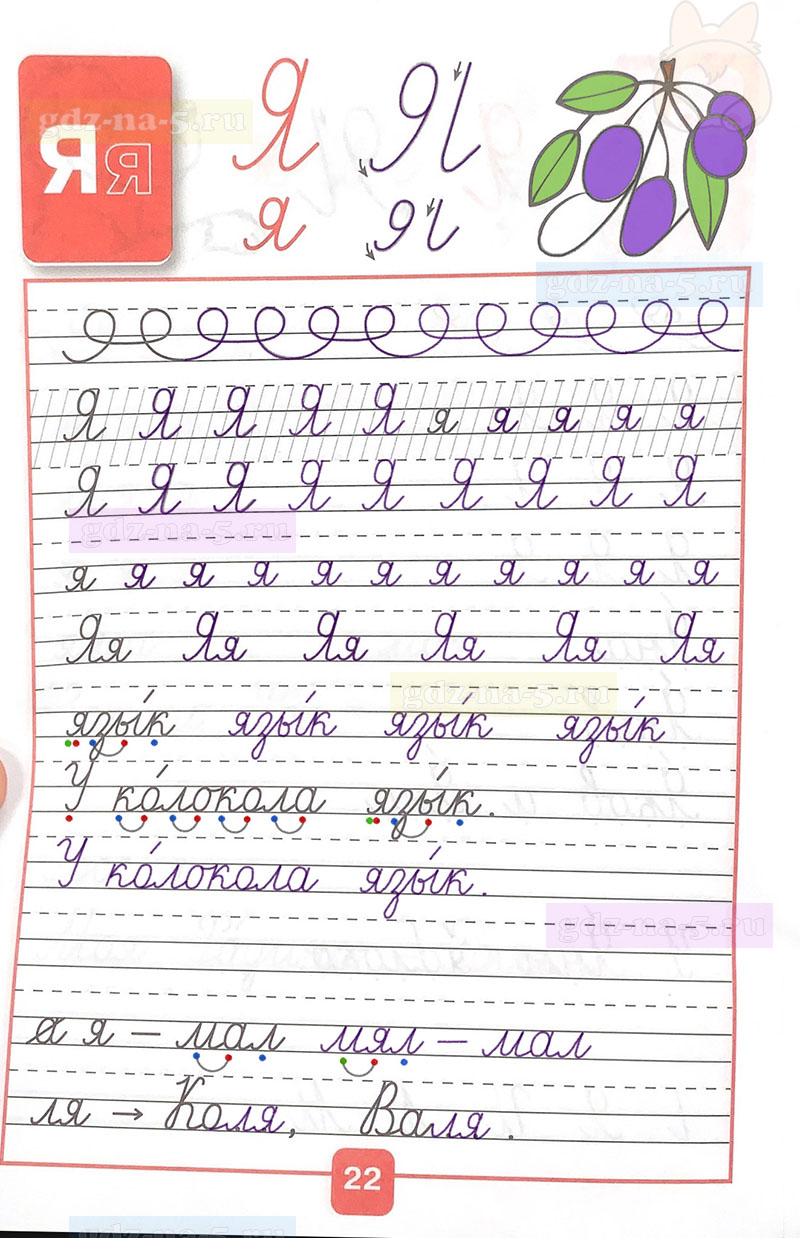 gdz-na-5.ru
Я я Я Я
я я
gdz-na-5.ru
Я Я Я Я Я я я я я я
Я Я Я Я Я Я Я Я Я
gdz-na-5.ru
я я я я я я я я я я я
Яя Яя Яя Яя Яя Яя
gdz-na-5.ru
язы́к язы́к язы́к язы́к
У ко́локола язы́к.
У ко́локола язы́к.
gdz-na-5.ru
а я – мал мял – мал
ля → Коля, Валя.
22
gdz-na-5.ru